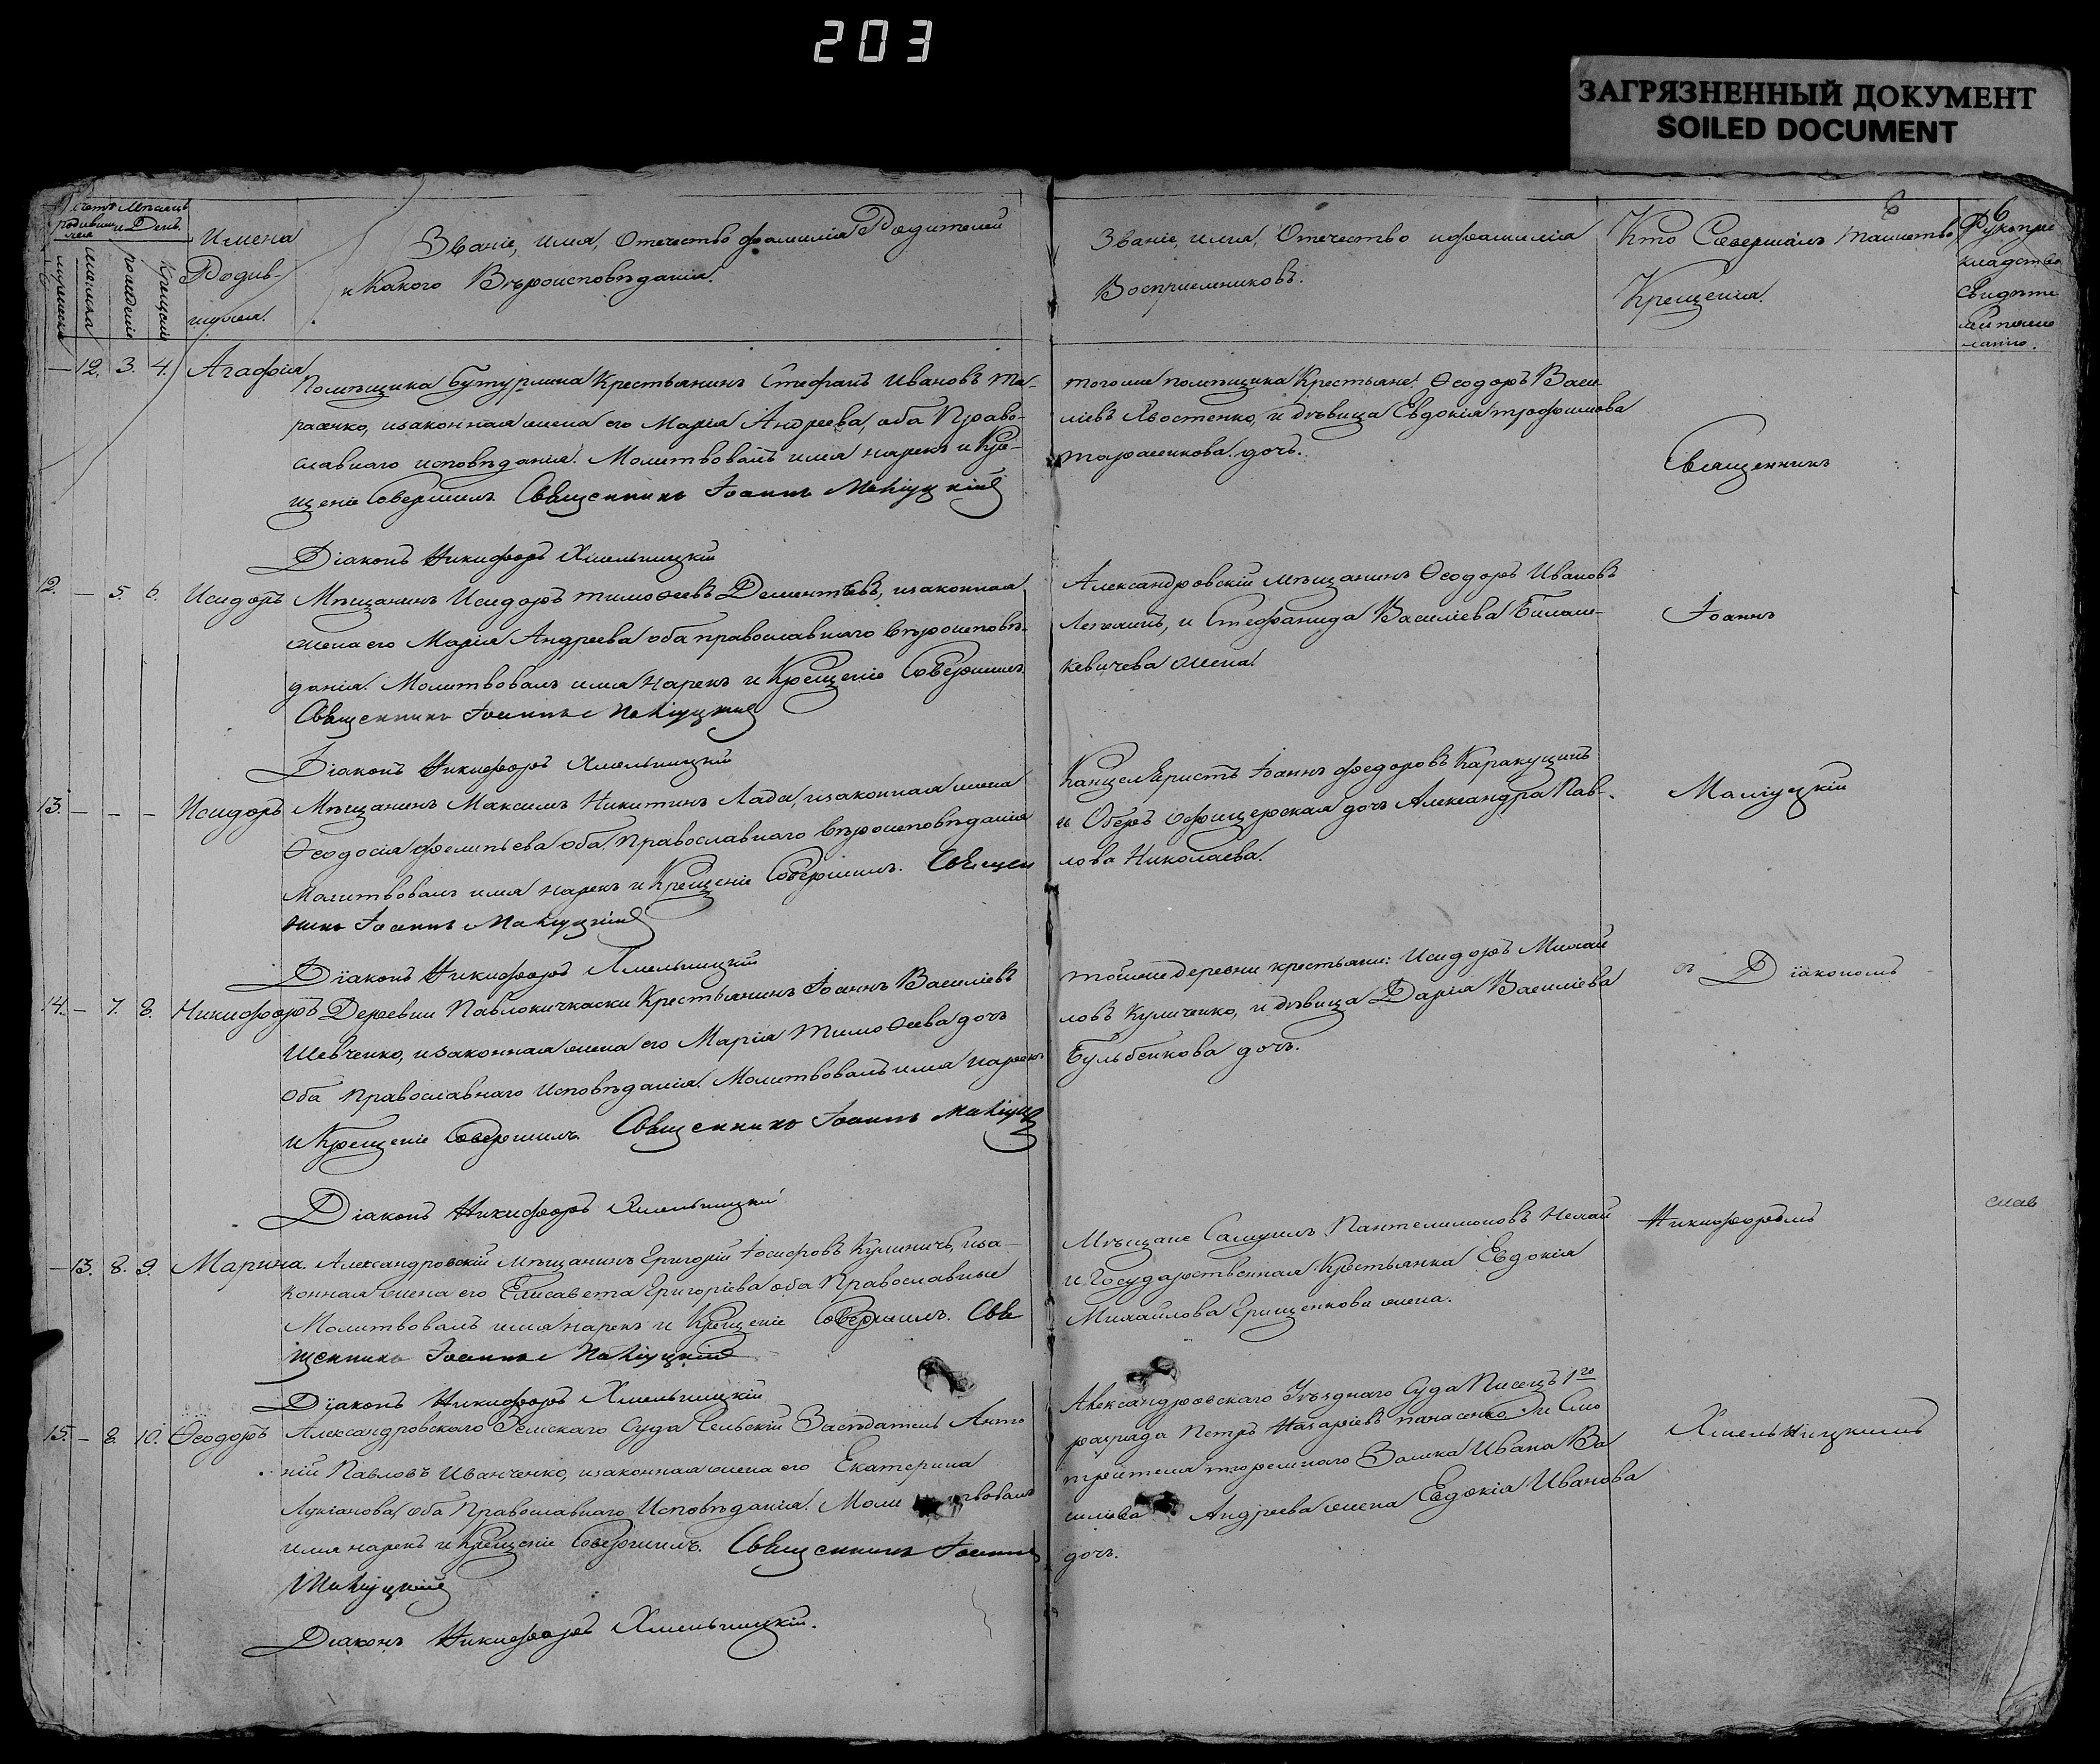 203
ЗАГРЯЗНЕННЫЙ ДОКУМЕНТ
SOILED DOCUMENT
Счетъ родившихся
Мѣсяцъ и День
мужеска
женска
рожденія
крещенія
Имена
Родив-
шихся.
Званіе, имя, Отечество фамилія Родителей
и Какого Вѣроисповѣданія.
Званіе, имя, Отечество и фамилія
Восприемниковъ.
Кто Совершалъ таинство
Крещенія.
6
Рукопри
кладство
Свидѣте
лей по же
ланію.
— 12. 3. 4. Агафія
Помѣщика Бутурлина Крестьянинъ Стефанъ Ивановъ Та-
расенко, и законная жена его Марія Андреева, оба Право-
славнаго исповѣданія. Молитвовалъ имя нарекъ и Кре-
щеніе Совершилъ Священникъ Іоаннъ
Діаконъ Никифоръ Хмельницкій
того же помѣщика Крестьяне: Ѳеодоръ Васи
ліевъ Хвостенко, и дѣвица Евдокія трофимова
тарасенкова дочь.
Священникъ
12. — 5. 6. Исидоръ
Мѣщанинъ Исидоръ тимоѳеевъ Дементьевъ, и законная
жена его Марія Андреева оба православнаго вѣроисповѣ-
данія. Молитвовалъ имя нарекъ и Крещеніе Совершилъ
Священникъ Іоаннъ
Діаконъ Никифоръ Хмельницкій
Александровскій мѣщанинъ Ѳеодоръ Ивановъ
и Стефанида Василіева
кевичева жена.
Іоаннъ
13. — — — Исидоръ
Мѣщанинъ Максимъ Никитинъ Лада, и законная жена
Ѳеодосія филипьева оба Православнаго вѣроисповѣданія
Молитвовалъ имя нарекъ и Крещеніе Совершилъ. Священ
никъ Іоаннъ
Діаконъ Никифоръ Хмельницкій
Канцеляристъ Іоаннъ федоровъ
и Оберъ офицерская дочь Александра Пав-
лова Николаева.
14. — 7. 8. Никифоръ
Деревни Павлокичкаски Крестьянинъ Іоаннъ Василіевъ
Шевченко, и законная жена его Марія Тимоѳеева дочь
оба Православнаго Исповѣданія. Молитвовалъ имя нарекъ
и Крещеніе Совершилъ. Священникъ Іоаннъ
Діаконъ Никифоръ Хмельницкій
той же деревни крестьяни: Исидоръ Михай
ловъ Куличенко, и дѣвица Дарія Василіева
Бульбенкова дочь.
съ Діакономъ
— 13. 8. 9. Марина.
Александровскій мѣщанинъ Григорій Іосифовъ Кулиничъ, и за-
конная жена его Елисавета Григоріева оба Православные
Молитвовалъ имя нарекъ и Крещеніе Совершилъ. Свя
щенникъ Іоаннъ
Діаконъ Никифоръ Хмельницкій
Мѣщане Самуилъ Пантелимоновъ
и Государственная Крестьянка Евдокія
Михаилова Грищенкова жена.
Никифоромъ
15. — 8. 10. Ѳеодоръ
Александровскаго Земскаго Суда Сельскій Засѣдатель Анто
ній Павловъ Иванченко, и законная жена его Екатерина
Лукіанова, оба Православнаго Исповѣданія. Моли твовалъ
имя нарекъ и Крещеніе Совершилъ. Священникъ Іоаннъ
Діаконъ Никифоръ Хмельницкій.
Александровскаго Уѣзднаго Суда Писецъ 1го
разряда Петръ Назаріевъ панасенко и Смо
трителя тюремнаго Замка Ивана Ва
силіева Андреева жена Евдокія Иванова
дочь.
Хмельницкимъ